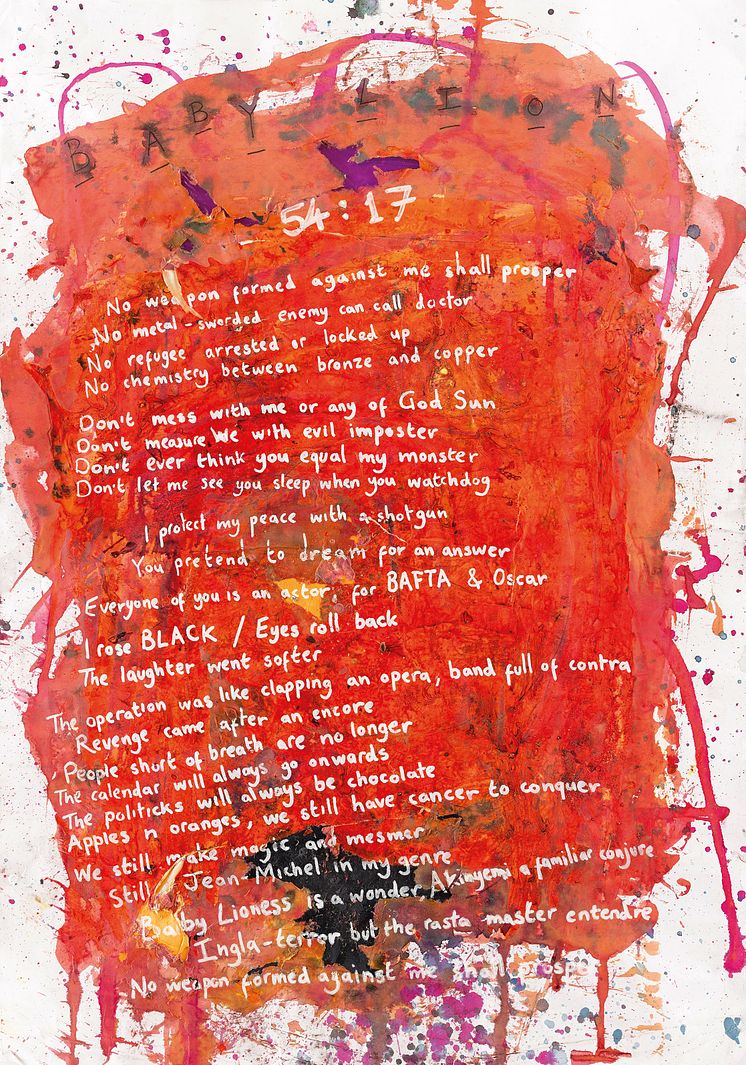 BABY LION
54:17
No weapon formed against me shall prosper
No metal-sworded enemy can call doctor
No refugee arrested or locked up
No chemistry between bronze and copper
Don't mess with me or any of God Sun
Don't measure We with evil imposter
Don't ever think you equal my monster
Don't let me see you sleep when you watchdog
I protect my peace with a shotgun
You pretend to dream for an answer
Everyone of you is an actor, for BAFTA & Oscar
I rose BLACK / Eyes roll back
The laughter went softer
The operation was like clapping an opera, band full of contra
Revenge came after an encore
People short of breath are no longer
The calendar will always go onwards
The politicks will always be chocolate
Apples n oranges, we still have cancer to conquer
We still make magic and mesmer
Still Jean-Michel in my genre
Baby Lioness is a wonder Akinyemi a familiar conjure
Ingla-terror but the rasta master entendre
No weapon formed against me shall prospe